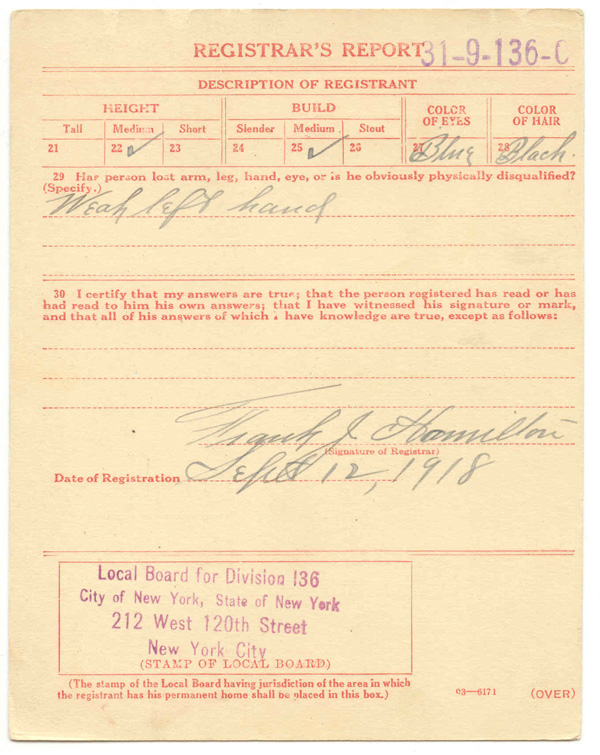 REGISTRAR'S REPORT 31-9-136-C
DESCRIPTION OF REGISTRANT
HEIGHT BUILD COLOR OF EYES COLOR OF HAIR
Tall Medium Short Slender Medium Stout
21 22 ✓ 23 24 25 ✓ 26 27 Blue 28 Black.
29 Has person lost arm, leg, hand, eye, or is he obviously physically disqualified?
(Specify.)
Weak left hand
30 I certify that my answers are true; that the person registered has read or has
had read to him his own answers; that I have witnessed his signature or mark,
and that all of his answers of which I have knowledge are true, except as follows:
Frank J. Hamilton
(Signature of Registrar)
Date of Registration Sept 12, 1918
Local Board for Division 136
City of New York, State of New York
212 West 120th Street
New York City
(STAMP OF LOCAL BOARD)
(The stamp of the Local Board having jurisdiction of the area in which
the registrant has his permanent home shall be placed in this box.)
03—6171 (OVER)